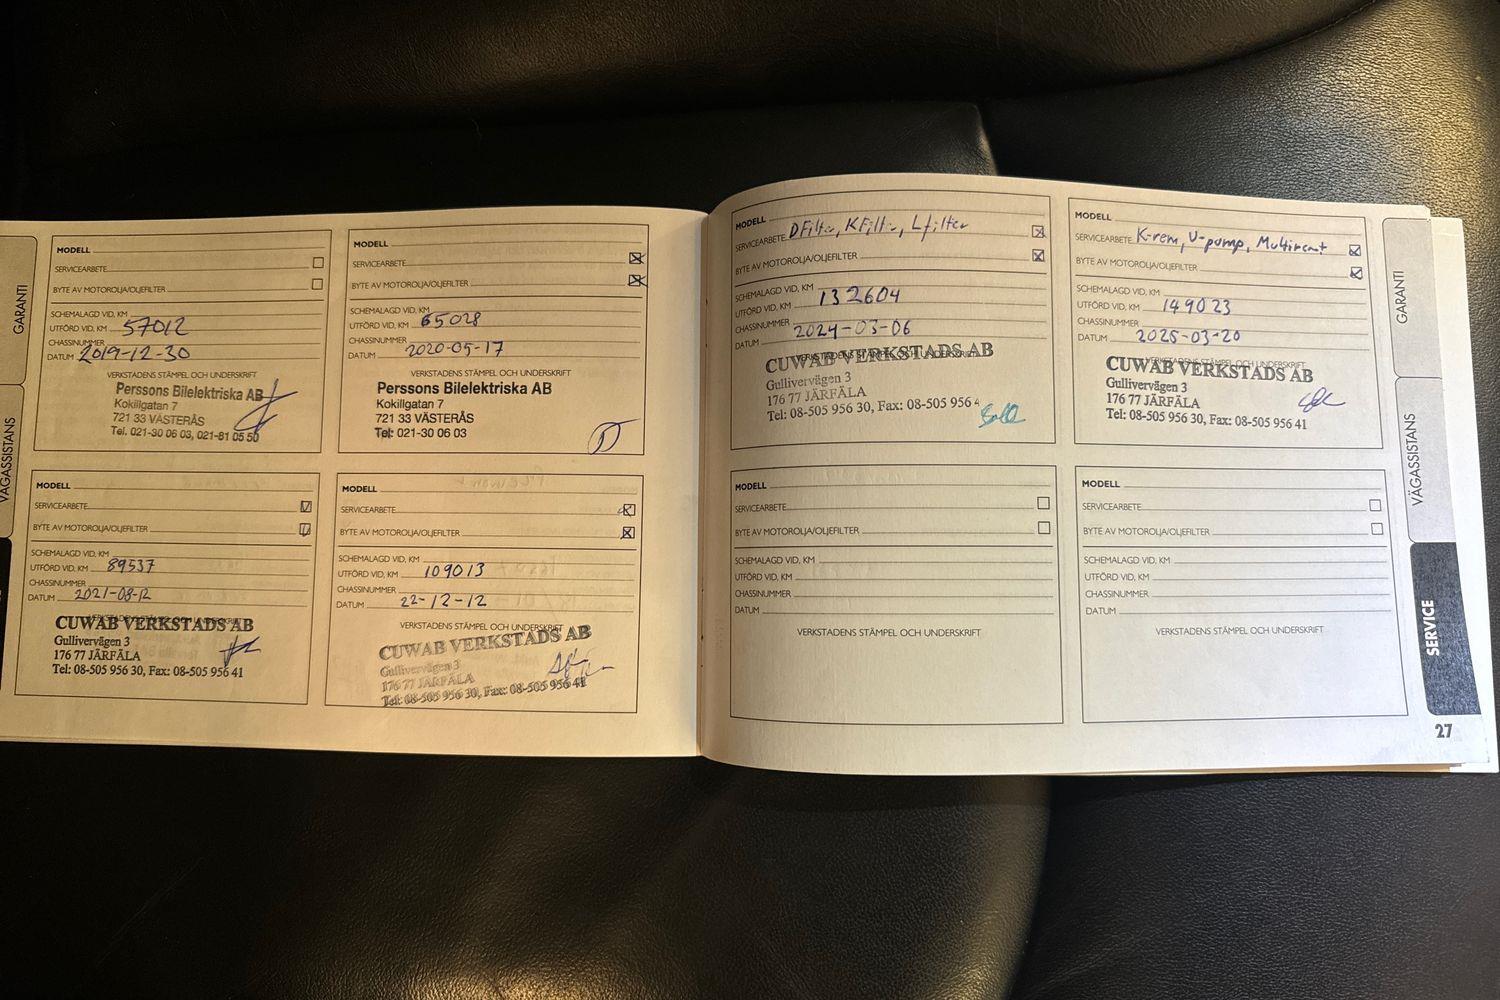 GARANTI
VÄGASSISTANS
MODELL
SERVICEARBETE
BYTE AV MOTOROLJA/OLJEFILTER
SCHEMALAGD VID, KM
UTFÖRD VID, KM 57012
CHASSINUMMER
DATUM 2019-12-30
VERKSTADENS STÄMPEL OCH UNDERSKRIFT
Perssons Bilelektriska AB
Kokillgatan 7
721 33 VÄSTERÅS
Tel. 021-30 06 03, 021-81 05 50
MODELL
SERVICEARBETE
BYTE AV MOTOROLJA/OLJEFILTER
SCHEMALAGD VID, KM
UTFÖRD VID, KM 65028
CHASSINUMMER
DATUM 2020-05-17
VERKSTADENS STÄMPEL OCH UNDERSKRIFT
Perssons Bilelektriska AB
Kokillgatan 7
721 33 VÄSTERÅS
Tel: 021-30 06 03
MODELL
SERVICEARBETE
BYTE AV MOTOROLJA/OLJEFILTER
SCHEMALAGD VID, KM
UTFÖRD VID, KM 89537
CHASSINUMMER
DATUM 2021-08-12
VERKSTADENS STÄMPEL OCH UNDERSKRIFT
CUWAB VERKSTADS AB
Gullivervägen 3
176 77 JÄRFÄLA
Tel: 08-505 956 30, Fax: 08-505 956 41
MODELL
SERVICEARBETE
BYTE AV MOTOROLJA/OLJEFILTER
SCHEMALAGD VID, KM
UTFÖRD VID, KM 109013
CHASSINUMMER
DATUM 22-12-12
VERKSTADENS STÄMPEL OCH UNDERSKRIFT
CUWAB VERKSTADS AB
Gullivervägen 3
176 77 JÄRFÄLA
Tel: 08-505 956 30, Fax: 08-505 956 41
MODELL
SERVICEARBETE DFilter, KFilter, Lfilter
BYTE AV MOTOROLJA/OLJEFILTER
SCHEMALAGD VID, KM
UTFÖRD VID, KM 132604
CHASSINUMMER
DATUM 2024-03-06
VERKSTADENS STÄMPEL OCH UNDERSKRIFT
CUWAB VERKSTADS AB
Gullivervägen 3
176 77 JÄRFÄLA
Tel: 08-505 956 30, Fax: 08-505 956 4
MODELL
SERVICEARBETE K-rem, V-pump, Multiremt
BYTE AV MOTOROLJA/OLJEFILTER
SCHEMALAGD VID, KM
UTFÖRD VID, KM 149023
CHASSINUMMER
DATUM 2025-03-20
VERKSTADENS STÄMPEL OCH UNDERSKRIFT
CUWAB VERKSTADS AB
Gullivervägen 3
176 77 JÄRFÄLA
Tel: 08-505 956 30, Fax: 08-505 956 41
MODELL
SERVICEARBETE
BYTE AV MOTOROLJA/OLJEFILTER
SCHEMALAGD VID, KM
UTFÖRD VID, KM
CHASSINUMMER
DATUM
VERKSTADENS STÄMPEL OCH UNDERSKRIFT
MODELL
SERVICEARBETE
BYTE AV MOTOROLJA/OLJEFILTER
SCHEMALAGD VID, KM
UTFÖRD VID, KM
CHASSINUMMER
DATUM
VERKSTADENS STÄMPEL OCH UNDERSKRIFT
GARANTI
VÄGASSISTANS
SERVICE
27